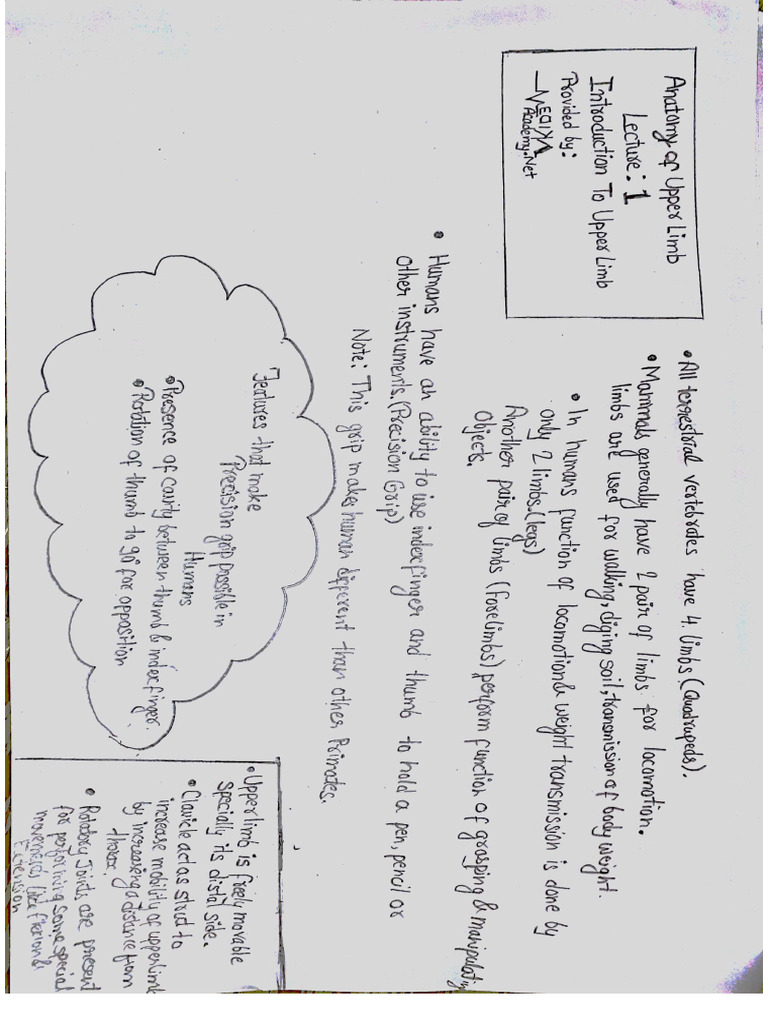 Anatomy of Upper Limb
Lecture: 1
Introduction To Upper Limb
Provided by:
MEDIX
Academy.Net
• All terrestrial vertebrates have 4 limbs (Quadrupeds).
• Mammals generally have 2 pair of limbs for locomotion.
limbs are used for walking, diging soil, transmission of body weight.
• In humans function of locomotion & weight transmission is done by
only 2 limbs. (legs)
Another pair of limbs (Forelimbs) perform function of grasping & manipulating
Objects.
• Humans have an ability to use index finger and thumb to hold a pen, pencil or
other instruments. (Precision Grip)
Note: This grip makes human different than other Primates.
Features that make
Precision grip possible in
Humans
• Presence of cavity between thumb & index finger.
• Rotation of thumb to 90° for opposition
• Upper limb is freely movable
specially its distal side.
• Clavicle act as strud to
increase mobility of upper limb
by increasing a distance from
thorax.
• Rotatory Joints are present
for performing some special
movements like flexion &
Extension